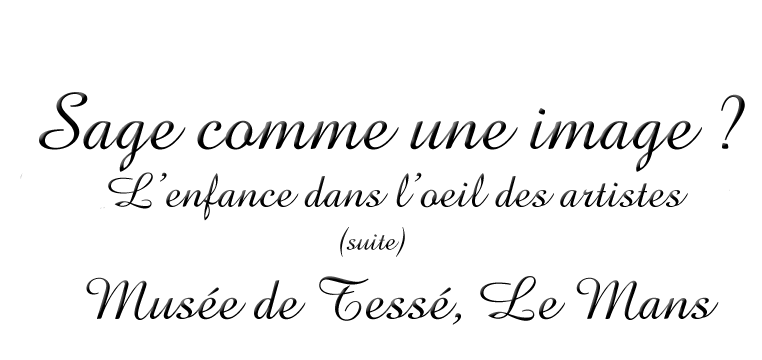 Sage comme une image ?
L'enfance dans l'oeil des artistes
(suite)
Musée de Tessé, Le Mans